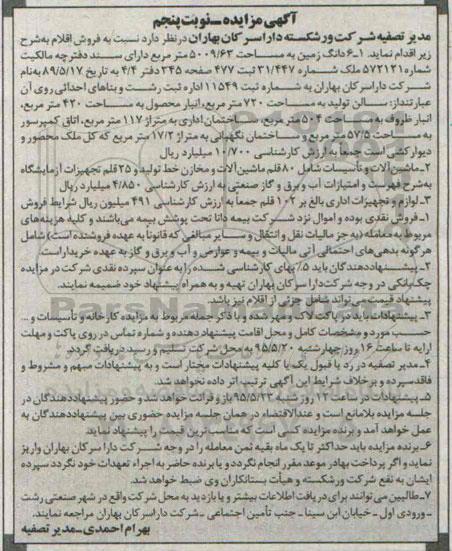 آگهی مزایده ــ نوبت پنجم
مدیر تصفیه شرکت ورشکسته دارا سرکان بهاران در نظر دارد نسبت به فروش اقلام به شرح
زیر اقدام نماید. ۱ـ۶ دانگ زمین به مساحت ۵۰۰۹/۶۳ متر مربع دارای سند دفترچه مالکیت
شماره ۵۷۲۱۲۱ ملک شماره ۳۱/۴۴۷ ثبت ۴۷۷ صفحه ۳۴۵ دفتر ۴/۴ به تاریخ ۸۹/۵/۱۷ به نام
شرکت دارا سرکان بهاران به شماره ثبت ۱۱۵۴۹ اداره ثبت رشت و بناهای احداثی روی آن
عبارتنداز: سالن تولید به مساحت ۷۲۰ متر مربع، انبار محصول به مساحت ۴۲۰ متر مربع،
انبار ظروف به مساحت ۵۰۴ متر مربع، ساختمان اداری به متراژ ۱۱۷ متر مربع، اتاق کمپرسور
به مساحت ۵۷/۵ متر مربع و ساختمان نگهبانی به متراژ ۱۷/۲ متر مربع که کل ملک محصور و
دیوارکشی است جمعا به ارزش کارشناسی ۱۰/۷۰۰ میلیارد ریال
۲ـ ماشین آلات و تأسیسات شامل ۸۰ قلم ماشین آلات و مخازن خط تولید و ۲۵ قلم تجهیزات آزمایشگاه
به شرح فهرست و امتیازات آب و برق و گاز صنعتی به ارزش کارشناسی ۴/۸۵۰ میلیارد ریال
۳ـ لوازم و تجهیزات اداری بالغ بر ۱۰۲ قلم جمعا به ارزش کارشناسی ۴۹۱ میلیون ریال شرایط فروش
۱ـ فروش نقدی بوده و اموال نزد شرکت بیمه دانا تحت پوشش بیمه می‌باشند و کلیه هزینه‌های
مربوط به معامله (به جز مالیات نقل و انتقال و سایر مبالغی که قانونا به عهده فروشنده است) شامل
هر گونه بدهی‌های احتمالی آتی مالیات و بیمه و عوارض و آب و برق و گاز به عهده خریدار است.
۲ـ پیشنهاددهندگان باید ۵٪ بهای کارشناسی شده را به عنوان سپرده نقدی شرکت در مزایده
چک بانکی در وجه شرکت دارا سرکان بهاران تهیه و به همراه پیشنهاد خود ضمیمه نمایند.
پیشنهاد قیمت می‌تواند شامل جزئی از اقلام نیز باشد.
۳ـ پیشنهادات باید در پاکت لاک و مهر شده و با ذکر جمله مربوط به مزایده کارخانه و تأسیسات و ...
حسب مورد و مشخصات کامل و محل اقامت پیشنهاد دهنده و شماره تماس در روی پاکت و مهلت
ارایه تا ساعت ۱۶ روز چهارشنبه ۹۵/۵/۲۰ به محل شرکت تسلیم و رسید دریافت گردد.
۴ـ مدیر تصفیه در رد یا قبول یک یا کلیه پیشنهادات مختار است و به پیشنهادات مبهم و مشروط و
فاقد سپرده و بر خلاف شرایط این آگهی ترتیب اثر داده نخواهد شد.
۵ـ پیشنهادات در ساعت ۱۲ روز شنبه ۹۵/۵/۲۳ باز و قرائت خواهد شد و حضور پیشنهاددهندگان در
جلسه مزایده بلامانع است و عنداالاقتضاء در همان جلسه مزایده حضوری بین پیشنهاددهندگان به
عمل خواهد آمد و برنده مزایده کسی است که مناسب‌ترین قیمت را پیشنهاد نماید
۶ـ برنده مزایده باید حداکثر تا یک ماه بقیه ثمن معامله را در وجه شرکت دارا سرکان بهاران واریز
نماید و اگر پرداخت بهاء در موعد مقرر انجام نگردد و یا برنده حاضر به اجراء تعهدات خود نگردد سپرده
ایشان به نفع شرکت ورشکسته و هیأت بستانکاران وی ضبط خواهد شد.
۷ـ طالبین می‌توانند برای دریافت اطلاعات بیشتر و یا بازدید به محل شرکت واقع در شهر صنعتی رشت
ـ ورودی اول ـ خیابان ابن سینا ـ جنب تأمین اجتماعی ـ شرکت دارا سرکان بهاران مراجعه نمایند.
بهرام احمدی ـ مدیر تصفیه